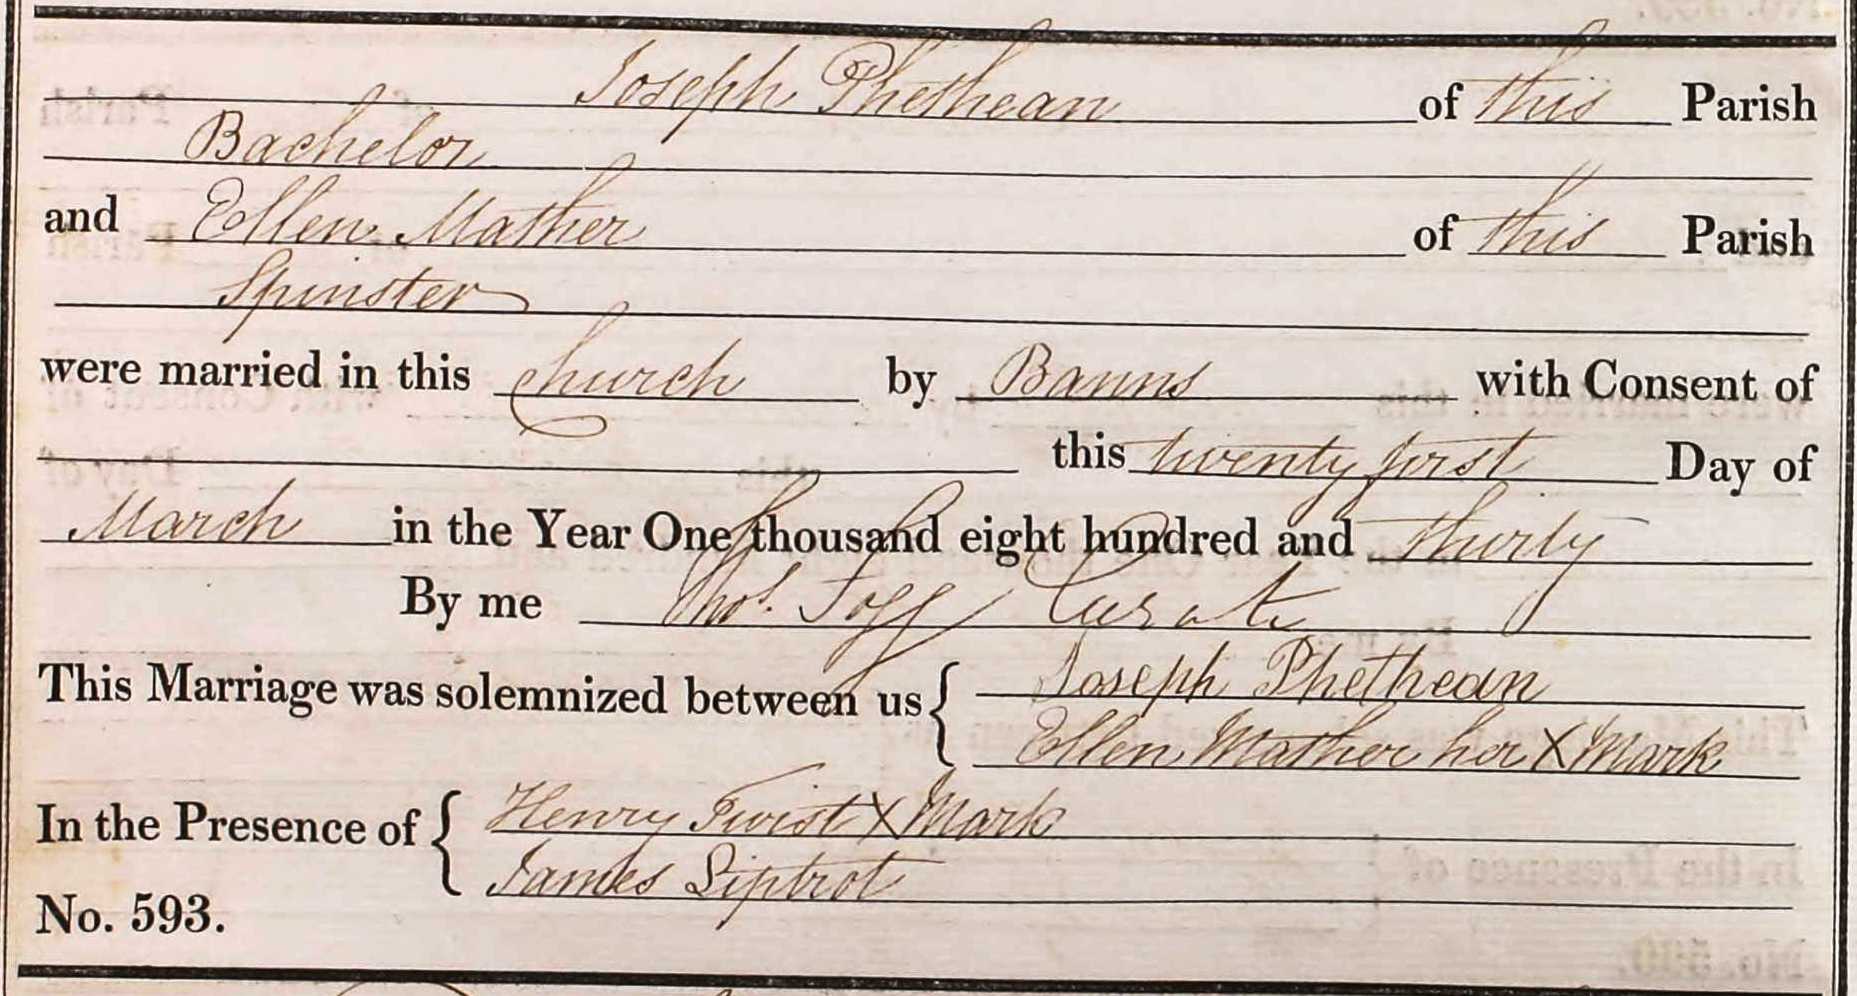 Joseph Phethean of this Parish
Bachelor
and Ellen Mather of this Parish
Spinster
were married in this Church by Banns with Consent of
this twenty first Day of
March in the Year One thousand eight hundred and thirty
By me Thos. Fogg Curate
This Marriage was solemnized between us { Joseph Phethean
Ellen Mather her X Mark
In the Presence of { Henry Twist X Mark
James Liptrot
No. 593.